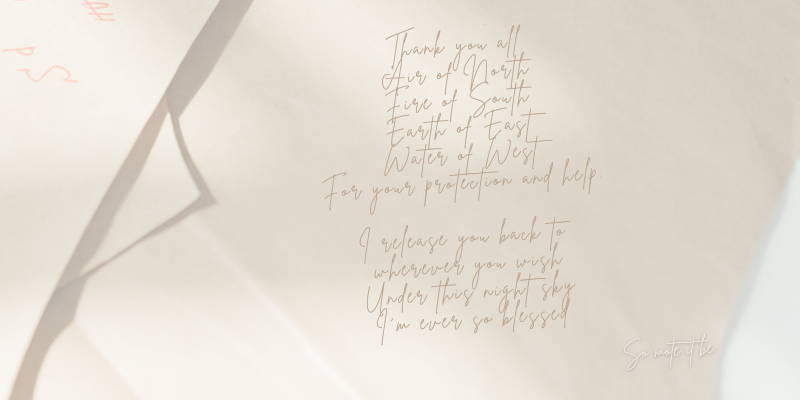 Thank you all
Air of North
Fire of South
Earth of East
Water of West
For your protection and help.
I release you back to
wherever you wish
Under this night sky
I'm ever so blessed
So mote it be
PS